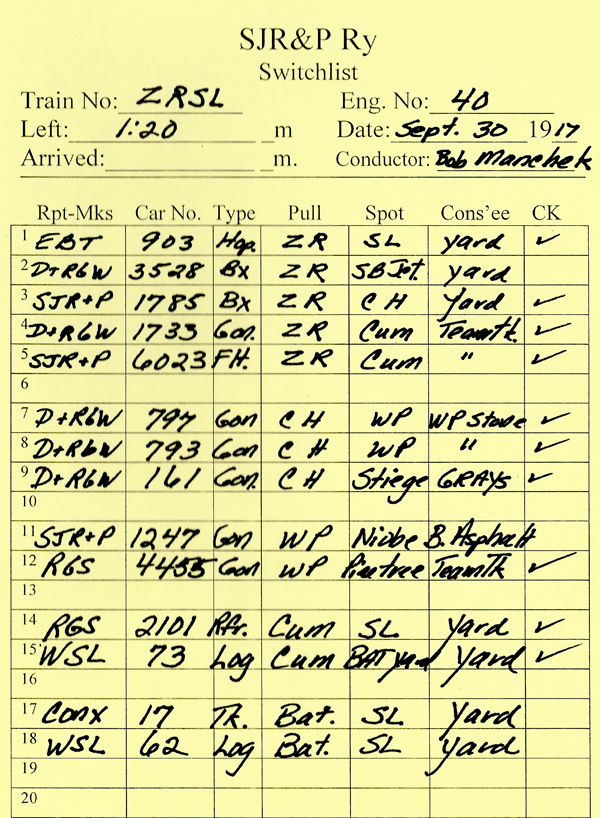 SJR&P Ry
Switchlist
Train No: ZRSL Eng. No: 40
Left: 1:20 m Date: Sept. 30 1917
Arrived: m. Conductor: Bob Manchek
Rpt-Mks Car No. Type Pull Spot Cons'ee CK
1 EBT 903 Hop. ZR SL yard ✓
2 D+RGW 3528 Bx ZR SB Jct. yard
3 SJR+P 1785 Bx ZR CH Yard ✓
4 D+RGW 1733 Gon. ZR Cum Teamtk. ✓
5 SJR+P 6023 FH. ZR Cum " ✓
6
7 D+RGW 797 Gon CH WP WP Stone ✓
8 D+RGW 793 Gon CH WP " ✓
9 D+RGW 161 Gon. CH Stiege GRAYs ✓
10
11 SJR+P 1247 Gon WP Niobe B. Asphalt
12 RGS 4455 Gon WP Pinetree TeamTk ✓
13
14 RGS 2101 Rfr. Cum SL yard ✓
15 WSL 73 Log Cum BAT yard Yard ✓
16
17 Conx 17 Tk. Bat. SL Yard
18 WSL 62 Log Bat. SL yard
19
20